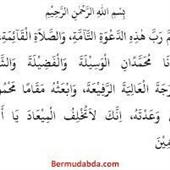 بِسْمِ اللهِ الرَّحْمٰنِ الرَّحِيْمِ
مَّ رَبَّ هٰذِهِ الدَّعْوَةِ التَّامَّةِ، وَالصَّلاَةِ الْقَائِمَةِ،
نَا مُحَمَّدَانِ الْوَسِيْلَةَ وَالْفَضِيْلَةَ وَالشَّ
رَجَةَ الْعَالِيَةَ الرَّفِيْعَةَ، وَابْعَثْهُ مَقَامًا مَحْمُو
وَعَدْتَهُ، إِنَّكَ لاَتُخْلِفُ الْمِيْعَادَ يَا أَ
مِيْنَ
Bermudabda.com